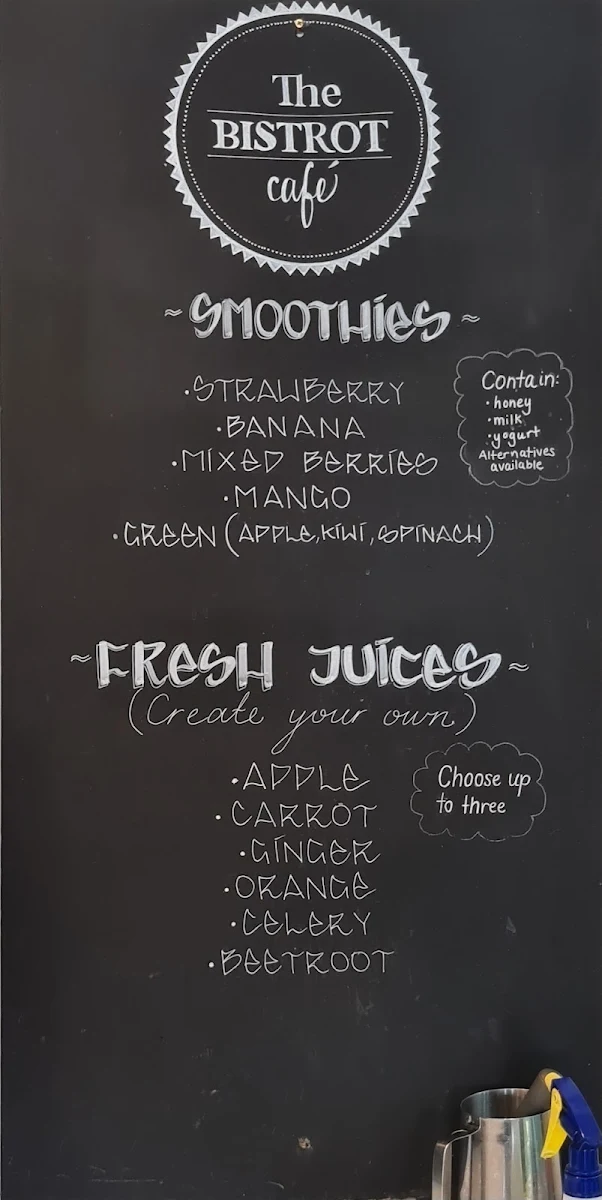 The
BISTROT
café
~SMOOTHIES~
·STRAWBERRY
·BANANA
·MIXED BERRIES
·MANGO
·GREEN (APPLE, KIWI, SPINACH)
Contain:
·honey
·milk
·yogurt
Alternatives
available
~FRESH JUICES~
(Create your own)
·APPLE
·CARROT
·GINGER
·ORANGE
·CELERY
·BEETROOT
Choose up
to three